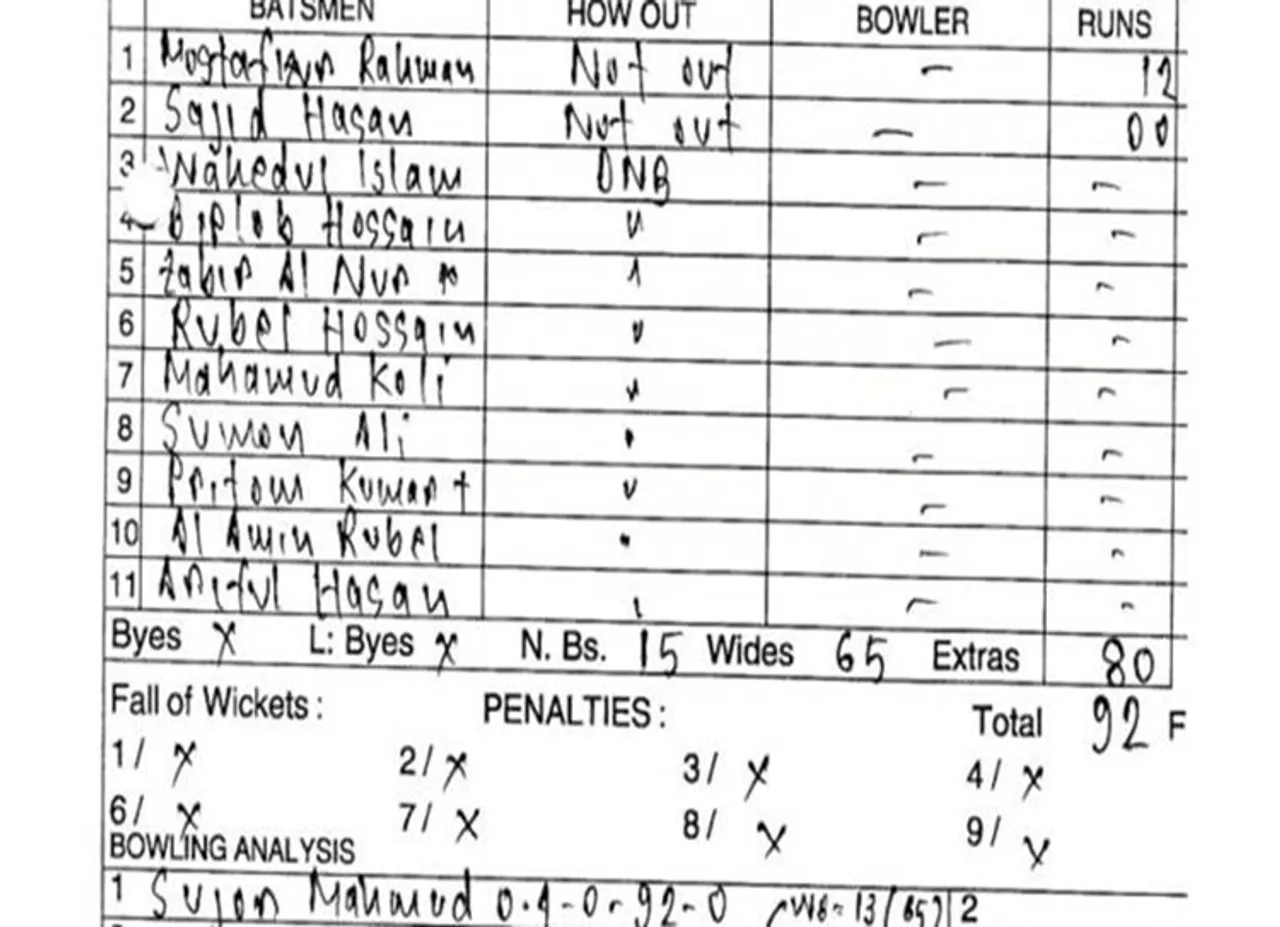 BATSMEN HOW OUT BOWLER RUNS
1 Mostafizur Rahman Not out – 12
2 Sajid Hasan Not out – 00
3 Wahedul Islam DNB – –
4 Biplob Hossain " – –
5 Zabir Al Nur * " – –
6 Rubel Hossain " – –
7 Mahamud Koli " – –
8 Sumon Ali " – –
9 Pritom Kumar † " – –
10 Al Amin Rubel " – –
11 Ariful Hasan " – –
Byes X L: Byes X N. Bs. 15 Wides 65 Extras 80
Fall of Wickets : PENALTIES : Total 92 F
1/ X 2/ X 3/ X 4/ X
6/ X 7/ X 8/ X 9/ X
BOWLING ANALYSIS
1 Sujon Mahmud 0.4-0-92-0 13(65) 2